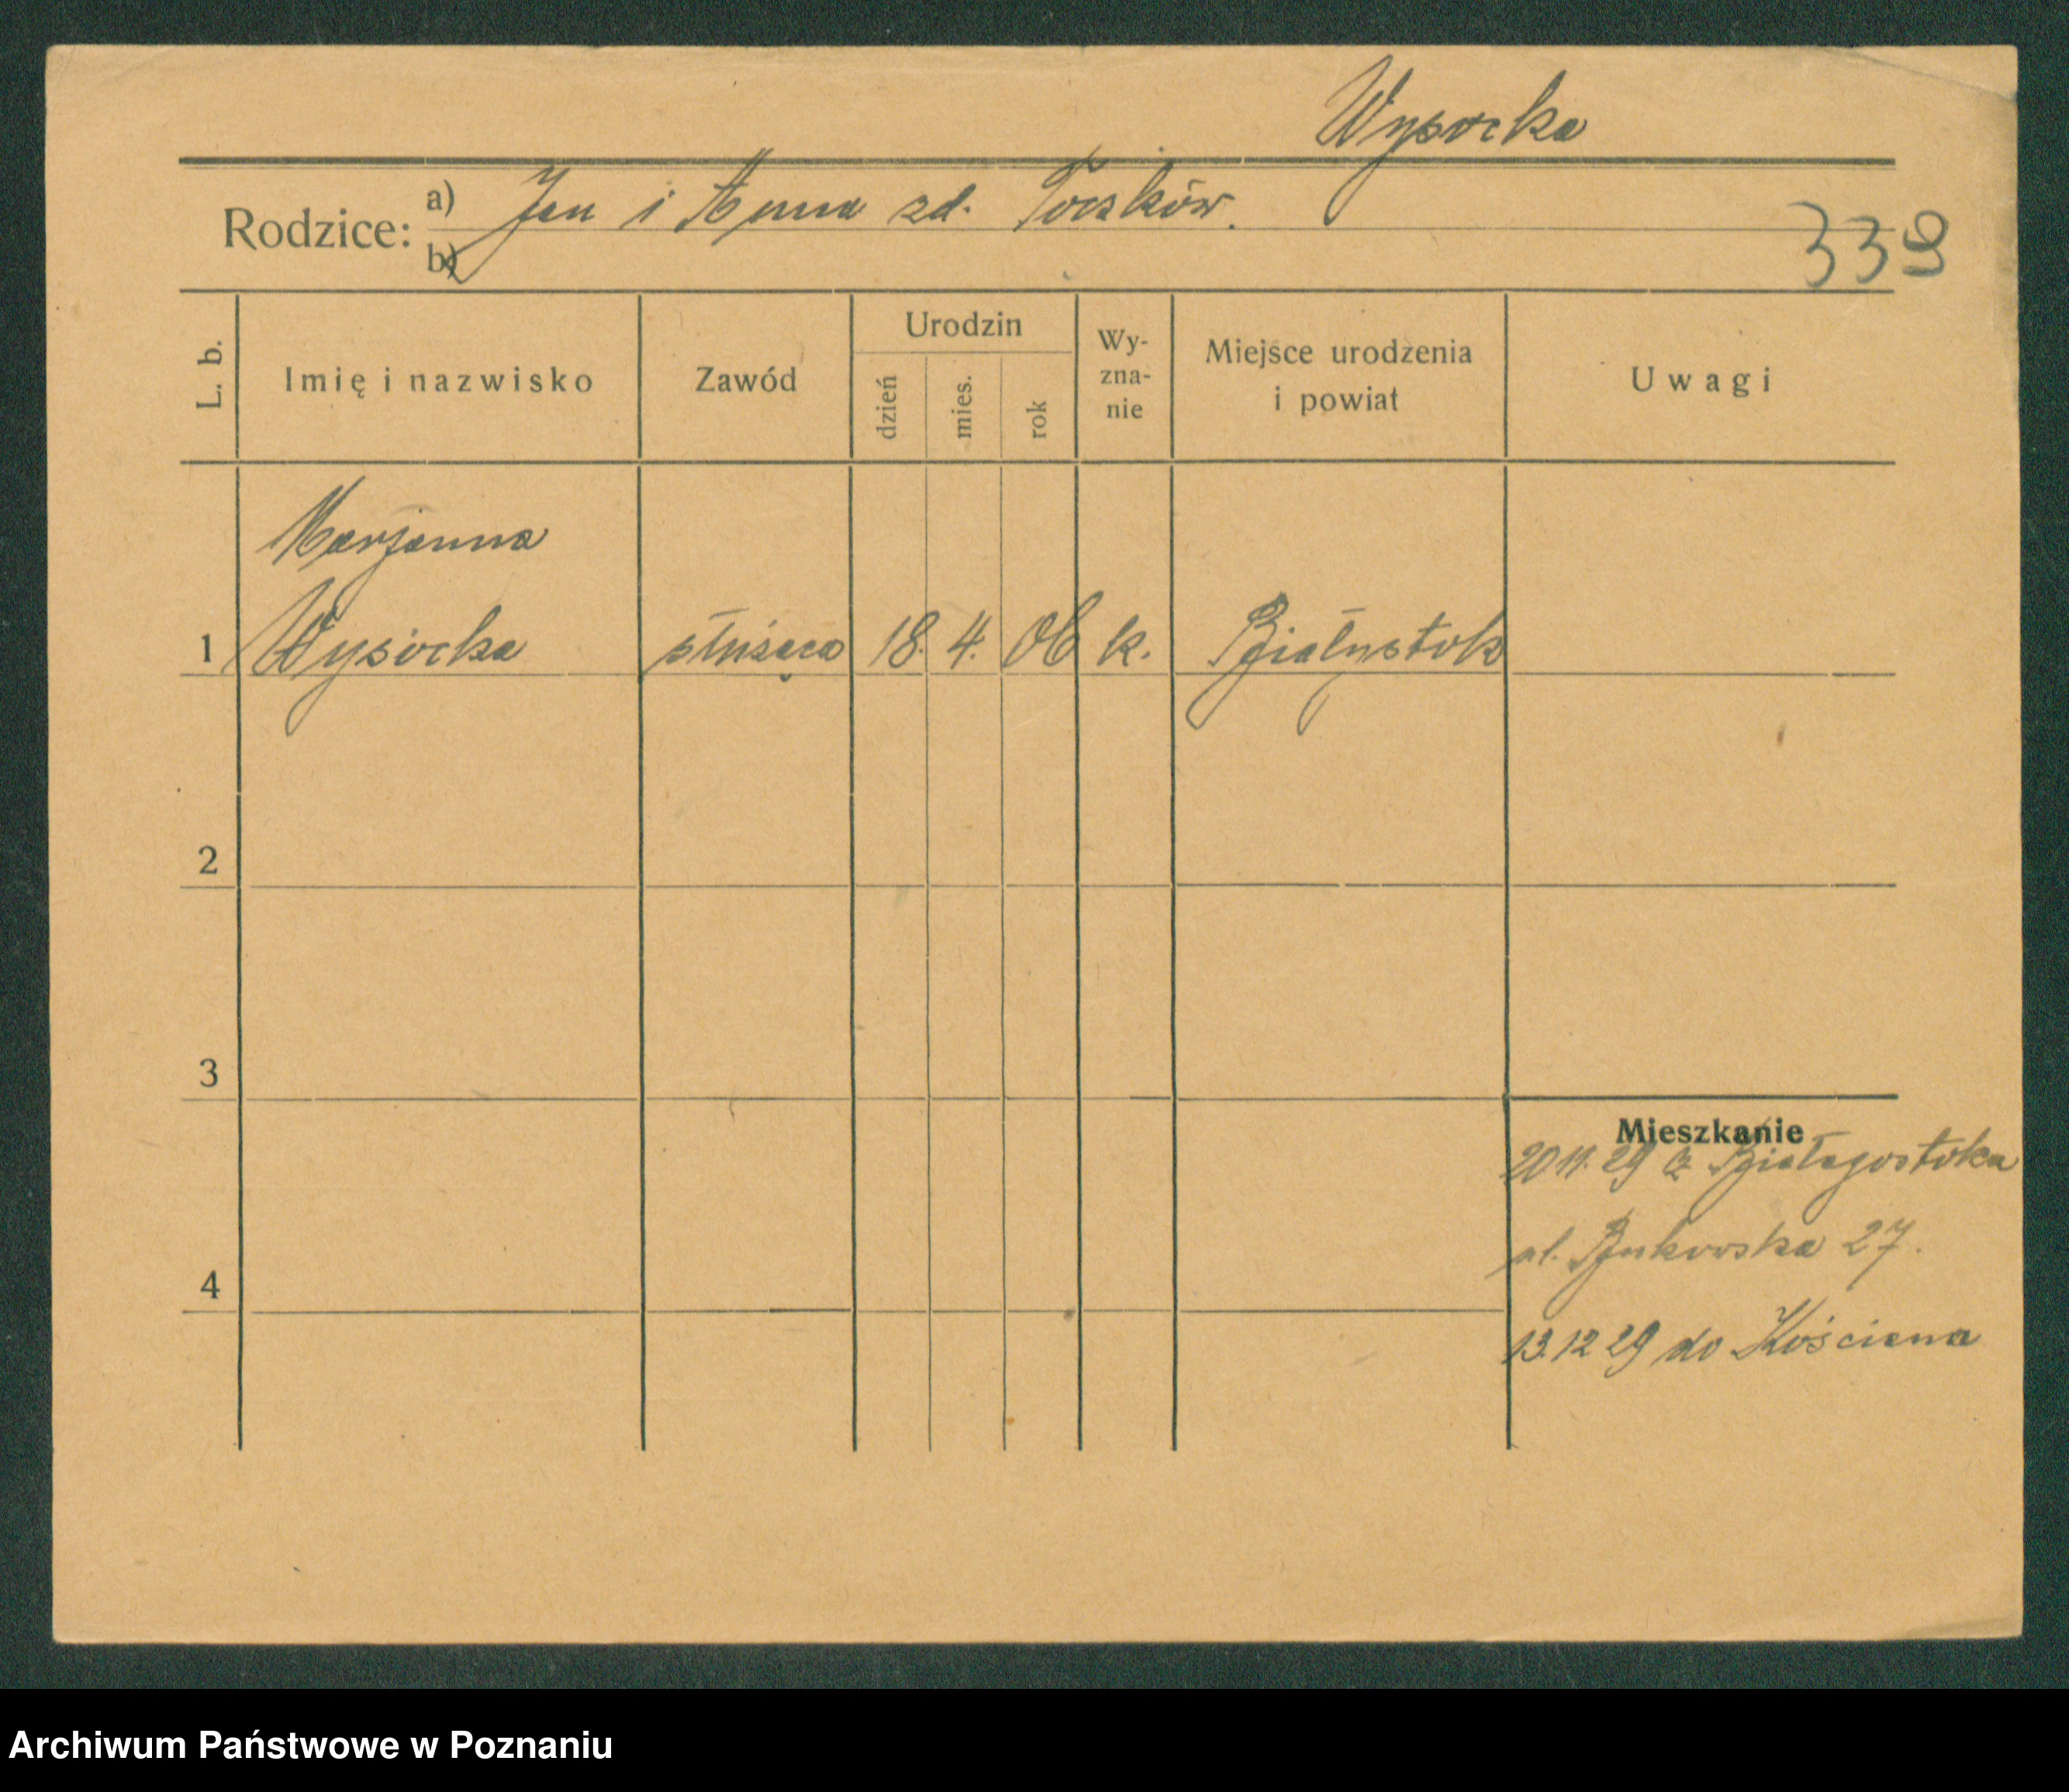 Wysocka
Rodzice: a) Jan i Anna zd. Toczków.
b)
339
L. b. Imię i nazwisko Zawód Urodzin dzień mies. rok Wy-zna-nie Miejsce urodzenia i powiat Uwagi
Marjanna
1 Wysocka służąca 18. 4. 06 k. Białystok
2
3
Mieszkanie
20 11. 29 z Białegostoku
ul. Bukowska 27.
4
13.12 29 do Kościana
Archiwum Państwowe w Poznaniu